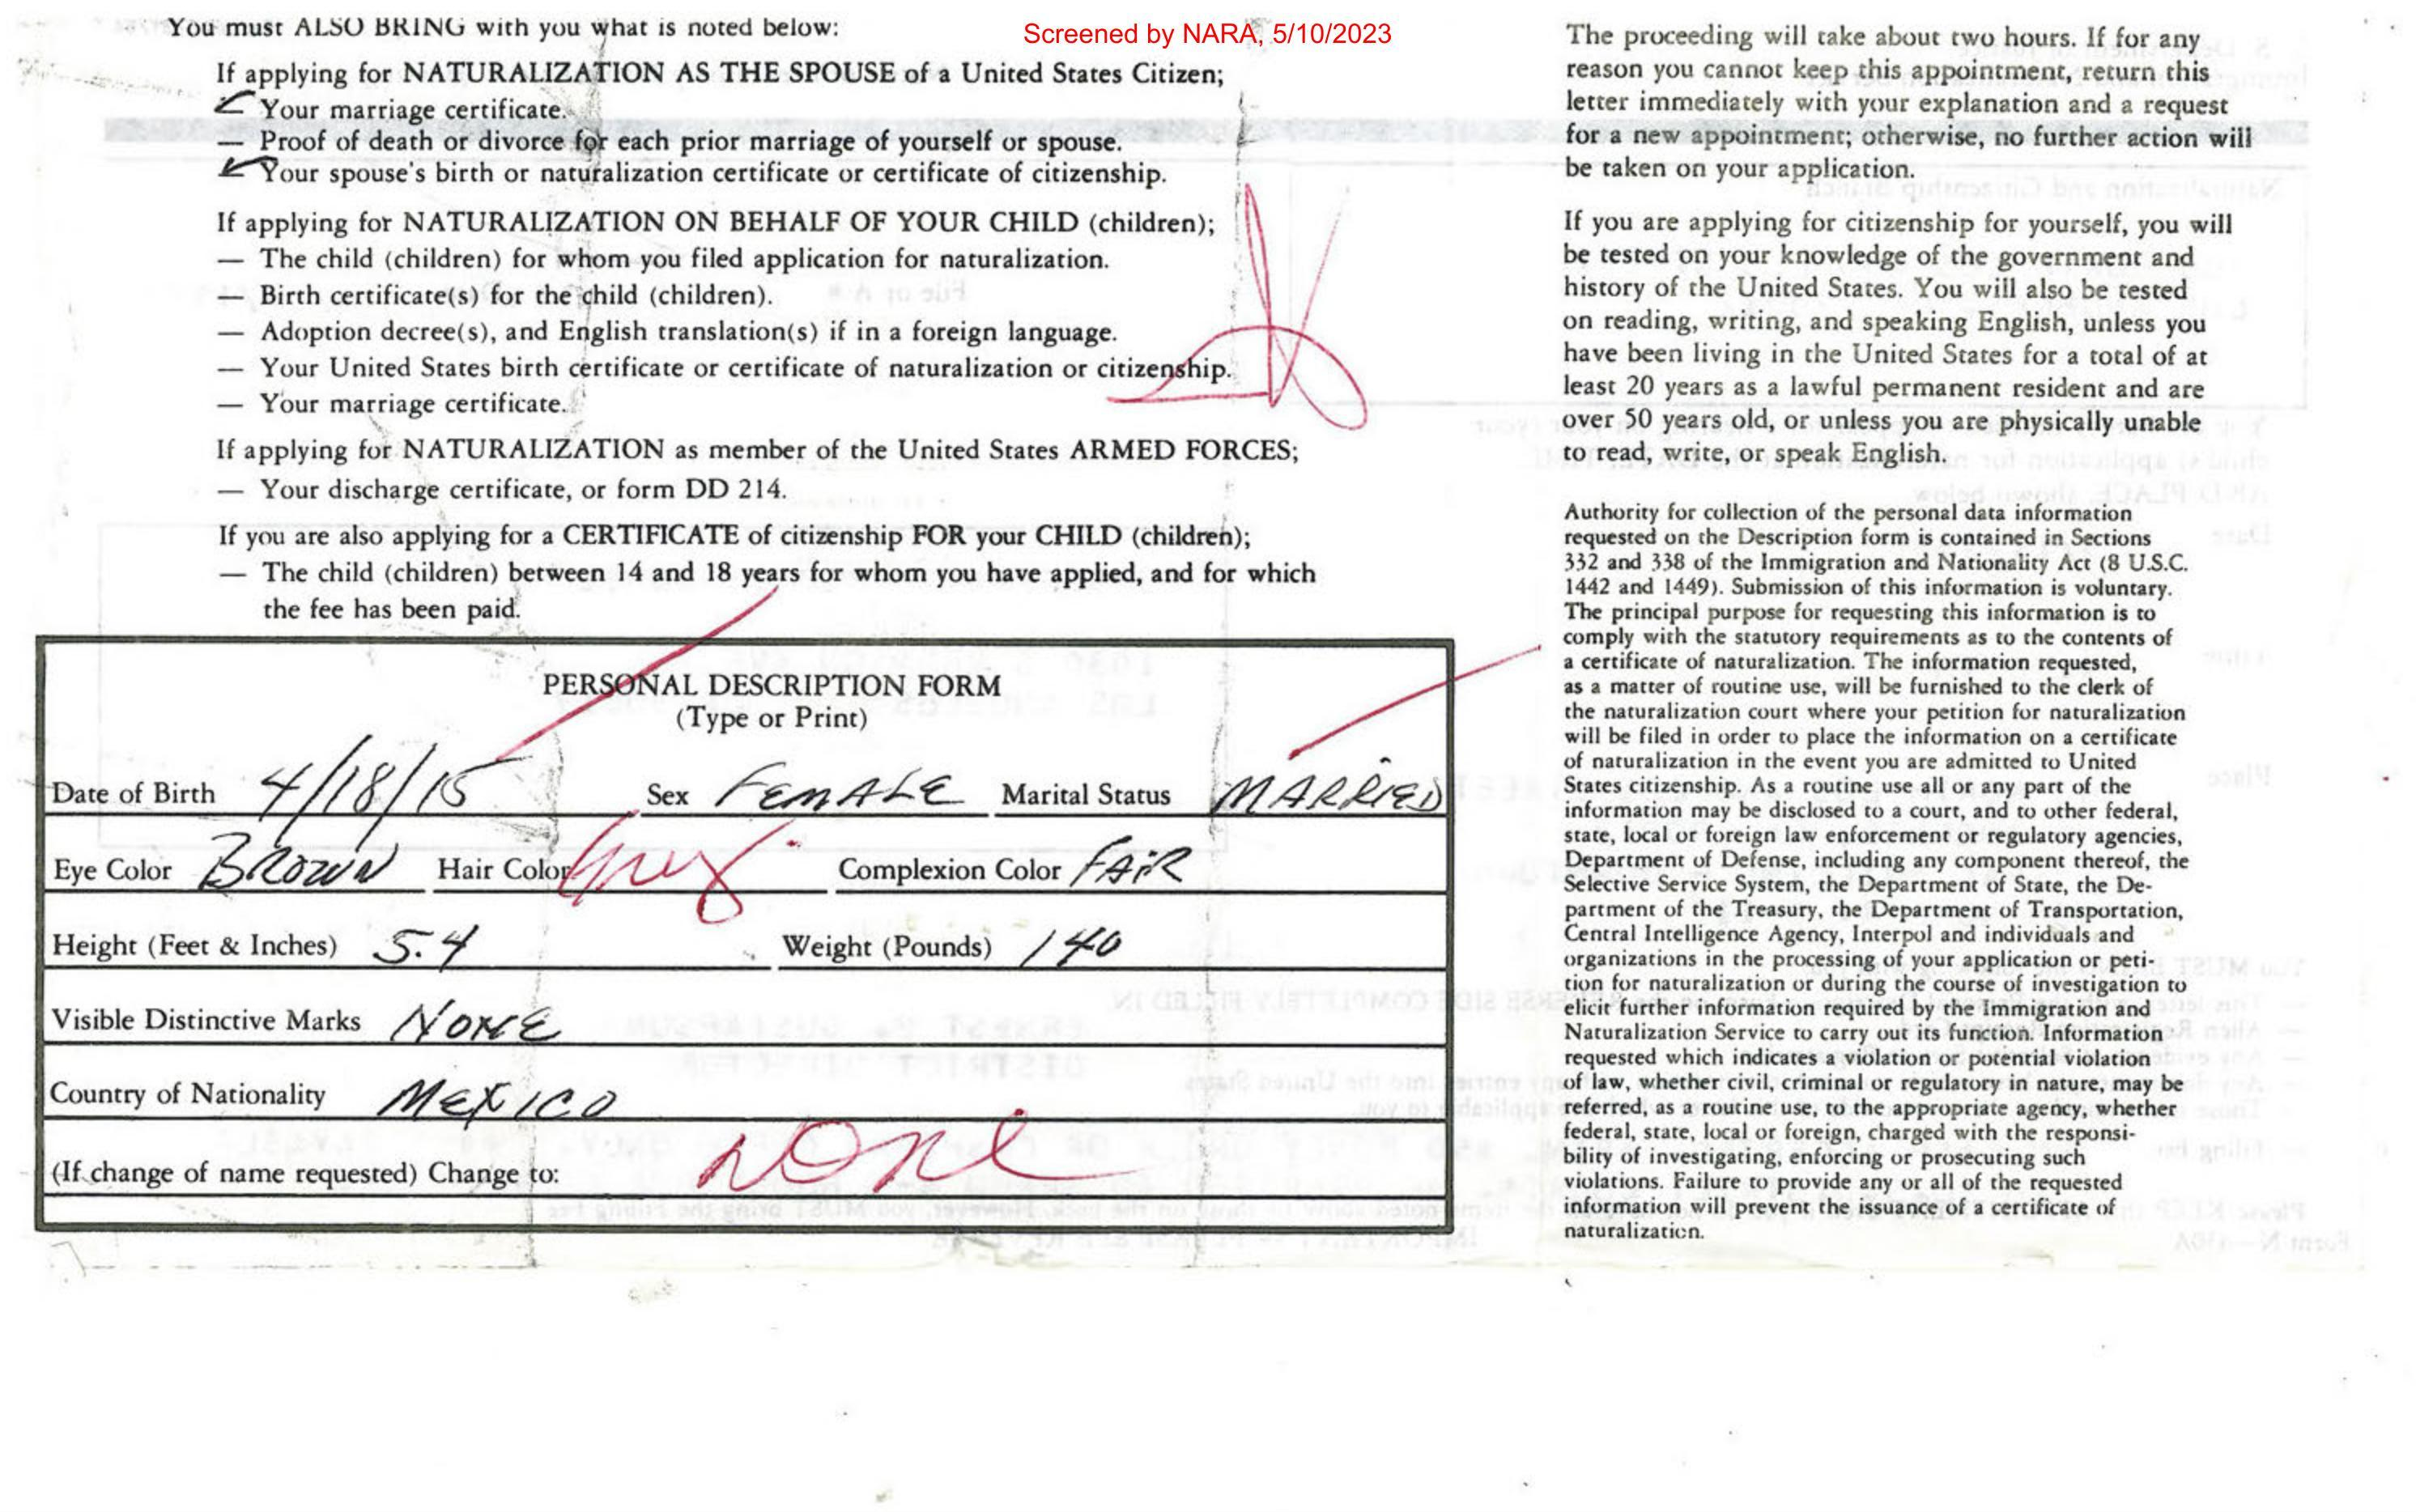 Screened by NARA, 5/10/2023
You must ALSO BRING with you what is noted below:
If applying for NATURALIZATION AS THE SPOUSE of a United States Citizen;
✓ Your marriage certificate.
— Proof of death or divorce for each prior marriage of yourself or spouse.
✓ Your spouse's birth or naturalization certificate or certificate of citizenship.
If applying for NATURALIZATION ON BEHALF OF YOUR CHILD (children);
— The child (children) for whom you filed application for naturalization.
— Birth certificate(s) for the child (children).
— Adoption decree(s), and English translation(s) if in a foreign language.
— Your United States birth certificate or certificate of naturalization or citizenship.
— Your marriage certificate.
If applying for NATURALIZATION as member of the United States ARMED FORCES;
— Your discharge certificate, or form DD 214.
If you are also applying for a CERTIFICATE of citizenship FOR your CHILD (children);
— The child (children) between 14 and 18 years for whom you have applied, and for which
the fee has been paid.
PERSONAL DESCRIPTION FORM
(Type or Print)
Date of Birth 4/18/15 Sex FEMALE Marital Status MARRIED
Eye Color BROWN Hair Color Grey Complexion Color FAIR
Height (Feet & Inches) 5.4 Weight (Pounds) 140
Visible Distinctive Marks NONE
Country of Nationality MEXICO
(If change of name requested) Change to: none
The proceeding will take about two hours. If for any
reason you cannot keep this appointment, return this
letter immediately with your explanation and a request
for a new appointment; otherwise, no further action will
be taken on your application.
If you are applying for citizenship for yourself, you will
be tested on your knowledge of the government and
history of the United States. You will also be tested
on reading, writing, and speaking English, unless you
have been living in the United States for a total of at
least 20 years as a lawful permanent resident and are
over 50 years old, or unless you are physically unable
to read, write, or speak English.
Authority for collection of the personal data information
requested on the Description form is contained in Sections
332 and 338 of the Immigration and Nationality Act (8 U.S.C.
1442 and 1449). Submission of this information is voluntary.
The principal purpose for requesting this information is to
comply with the statutory requirements as to the contents of
a certificate of naturalization. The information requested,
as a matter of routine use, will be furnished to the clerk of
the naturalization court where your petition for naturalization
will be filed in order to place the information on a certificate
of naturalization in the event you are admitted to United
States citizenship. As a routine use all or any part of the
information may be disclosed to a court, and to other federal,
state, local or foreign law enforcement or regulatory agencies,
Department of Defense, including any component thereof, the
Selective Service System, the Department of State, the De-
partment of the Treasury, the Department of Transportation,
Central Intelligence Agency, Interpol and individuals and
organizations in the processing of your application or peti-
tion for naturalization or during the course of investigation to
elicit further information required by the Immigration and
Naturalization Service to carry out its function. Information
requested which indicates a violation or potential violation
of law, whether civil, criminal or regulatory in nature, may be
referred, as a routine use, to the appropriate agency, whether
federal, state, local or foreign, charged with the responsi-
bility of investigating, enforcing or prosecuting such
violations. Failure to provide any or all of the requested
information will prevent the issuance of a certificate of
naturalization.